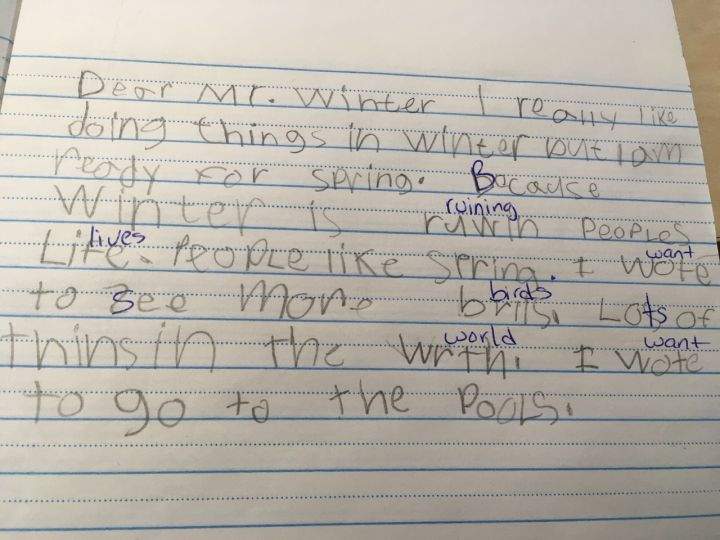 Dear Mr. Winter I really like
doing things in winter but I am
ready For spring. Bacause
ruining
Winter is ruwin PeoPles
lives want
Life. PeoPLe like spring. I wote
birds
to see more brils. Lots of
world want
thinsin the wrth. I wote
to go to the Pools.